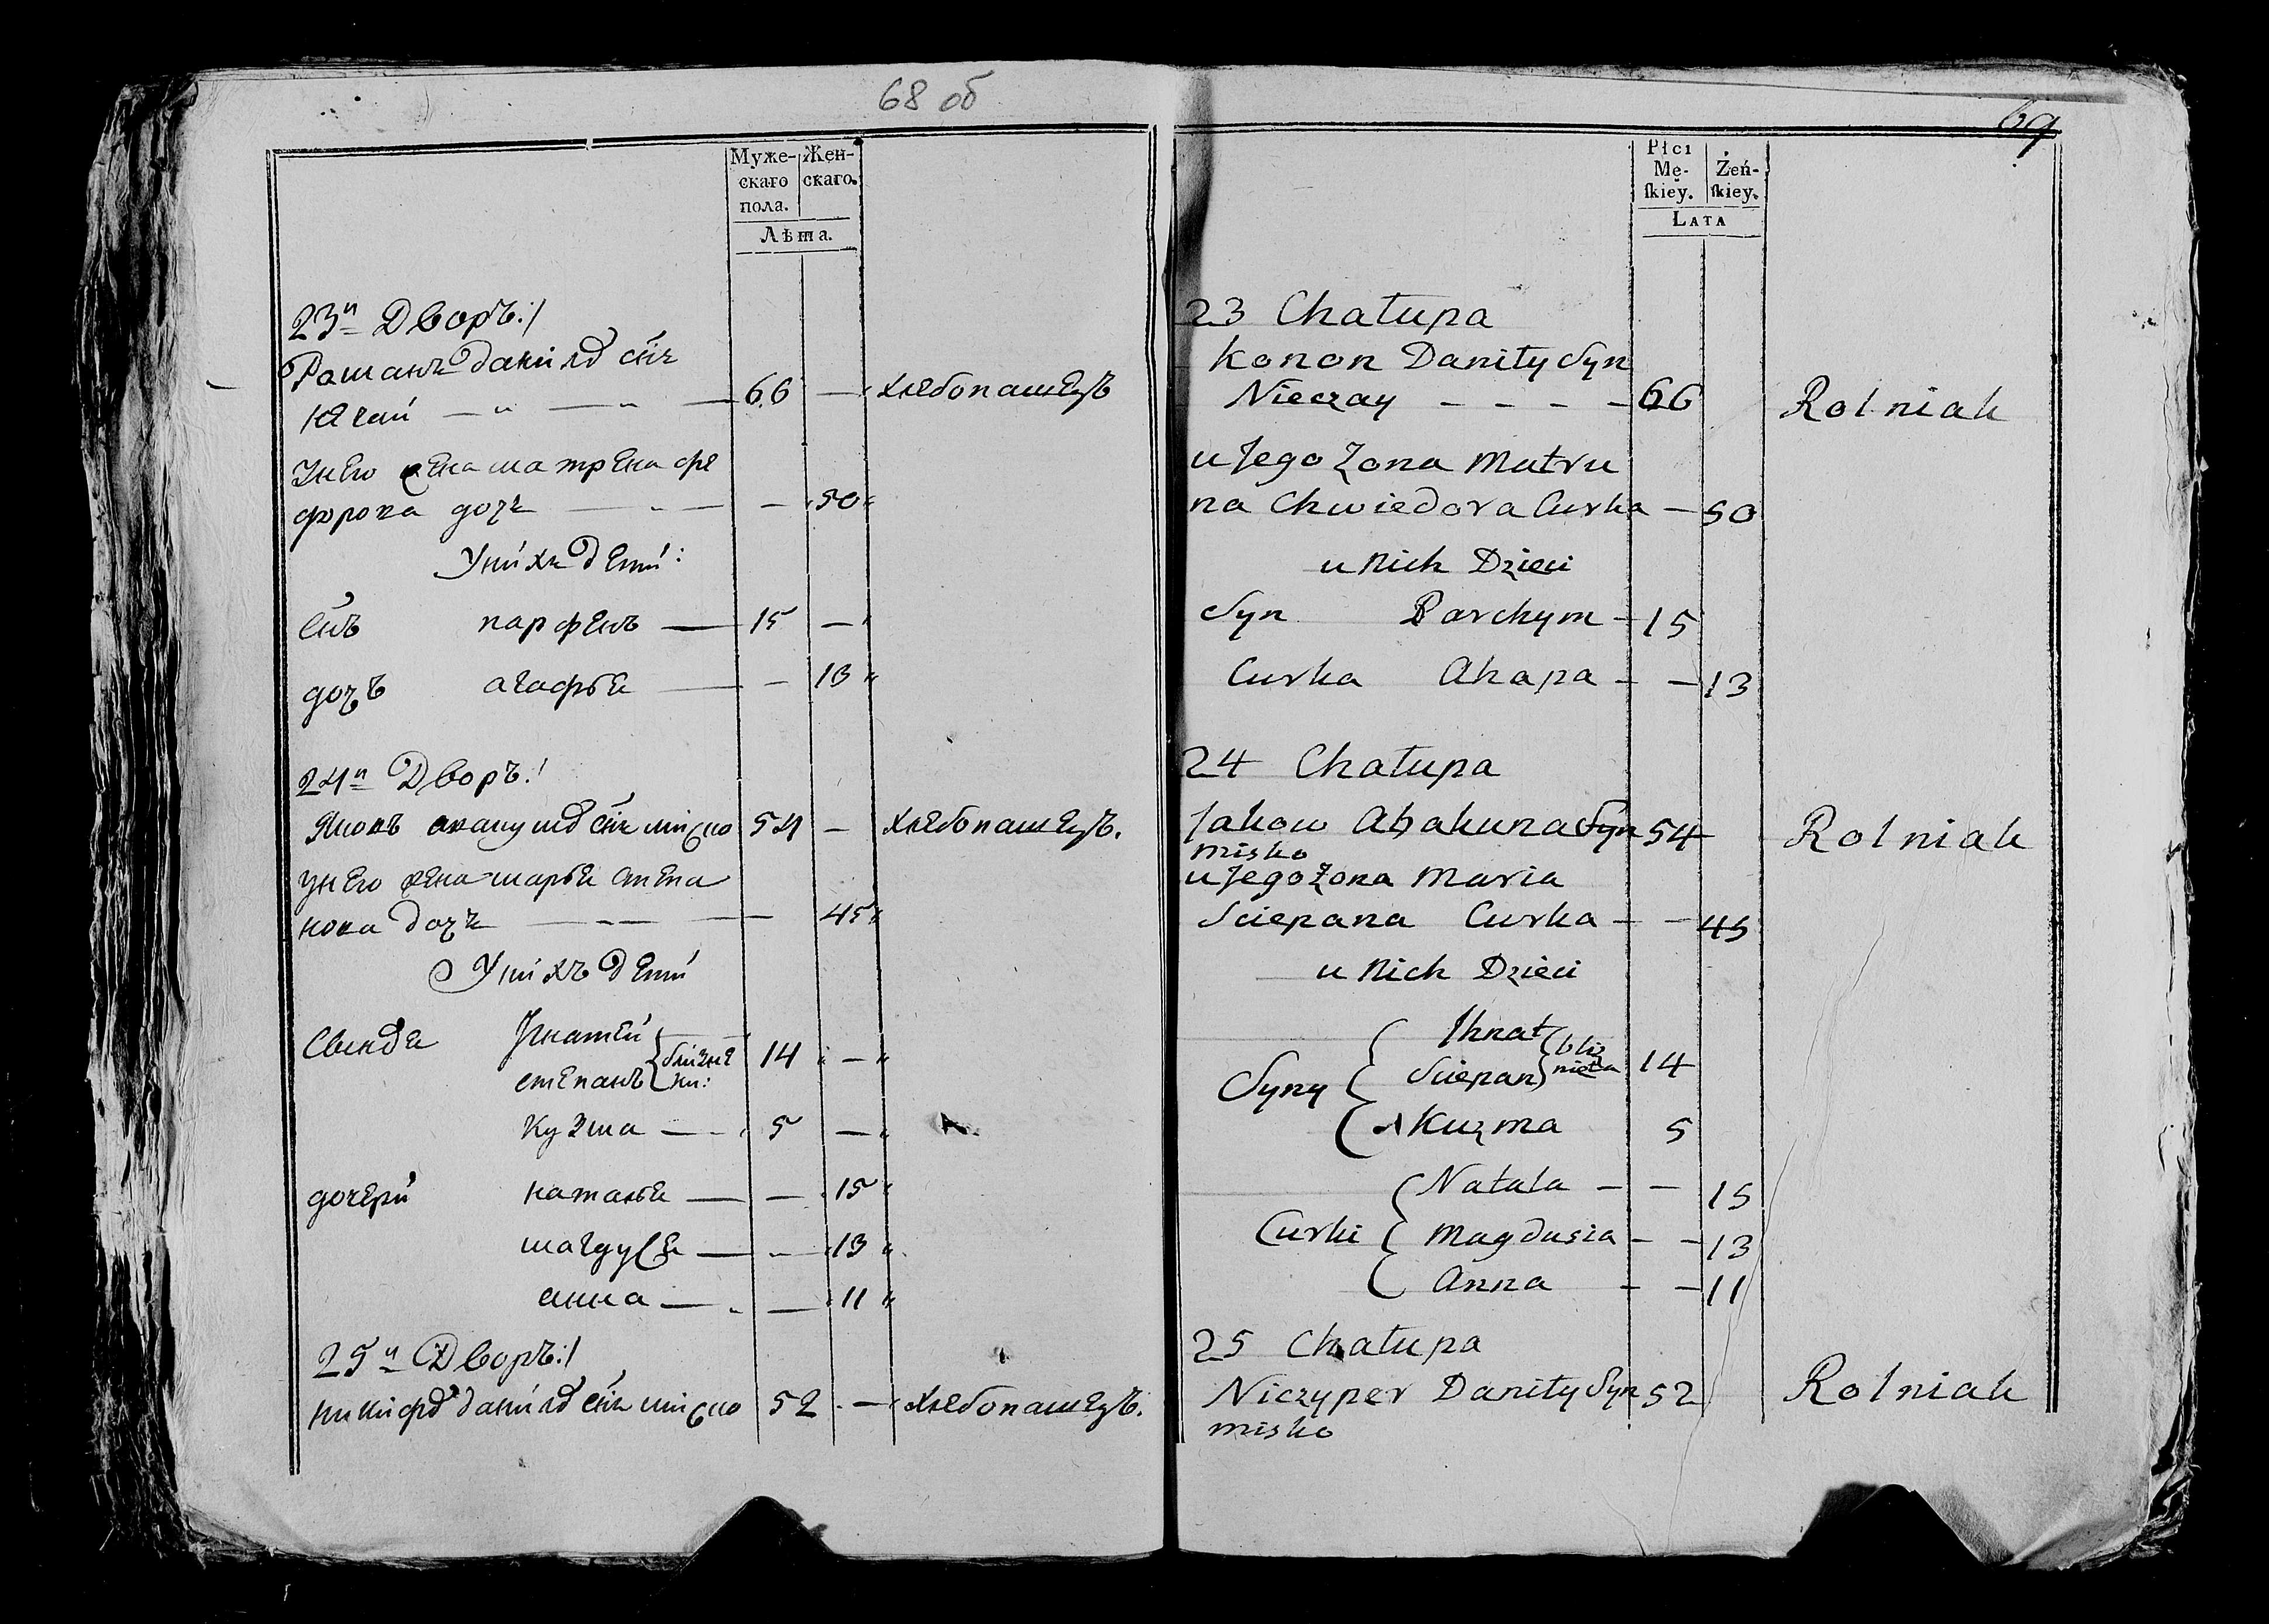 68 об
Муже- Жен-
скаго скаго.
пола.
Лѣта.
23й Дворъ:/
Романъ данилов снъ
нечай — " — " — 66 — хлебопашецъ
Унего жена матрена фе
дорова дочъ — 50
Унихъ дети:
снъ парфенъ — 15 —
дочъ агафья — — 13
24й Дворъ:/
Яковъ снъ миско 54 — хлебопашецъ.
унего жена марья степа
нова дочъ — — 45
Унихъ дети
Игнатей
степанъ близне 14 —
ки:
кузма — 5 —
дочери наталья — — 15
магдуся — — 13
анна — — 11
25й Дворъ:/
никифор данилов снъ миско 52 — хлебопашецъ.
69
Płci
Mę- Żeń-
ſkiey. ſkiey.
LATA
23 Chałupa
Konon Daniły Syn
Nieczay - - - - 66 Rolniak
u Jego Zona Matru
na Chwiedora Curka — 50
u Nich Dzieci
Syn Parchym - 15
Curka Ahapa - — 13
24 Chałupa
Jakow Abakuna Syn 54 Rolniak
misko
u Jego Zona Maria
Sciepana Curka - — 45
u Nich Dzieci
Ihnat bliz
Syny Sciepan nięta 14
Kuzma 5
Natala - — 15
Curki Magdusia - — 13
Anna - — 11
25 Chałupa
Niczyper Daniły Syn 52 Rolniak
misko